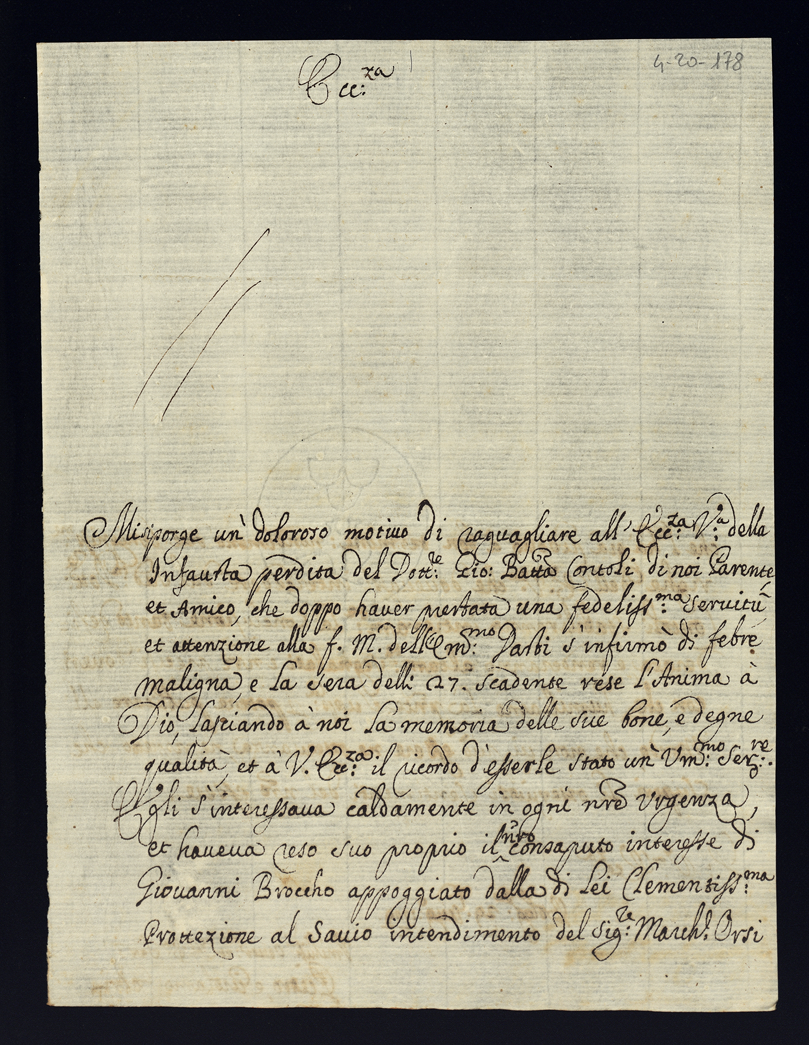 4-20-178
Ecc:za
Mi si porge un' doloroso motivo di raguagliare all' Ecc:za V:a della
Infausta perdita del Dott:re Gio: Batta Contoli di noi Parente
et Amico, che doppo haver prestata una fedeliss:ma servitù
et attenzione alla f. M. dell' Em:mo Dasti s'infirmò di febre
maligna, e la sera delli 27. scadente rese l'Anima à
Dio, lasciando à noi la memoria delle sue bone, e degne
qualità, et à V. Ecc:za il ricordo d'esserle stato un' Um:mo Ser:re.
Egli s'interessava caldamente in ogni nrã Urgenza,
et haveva reso suo proprio il nrõ consaputo interesse di
Giovanni Broccho appoggiato dalla di Lei Clementiss:ma
Prottezione al Savio intendimento del Sig:re March: Orsi